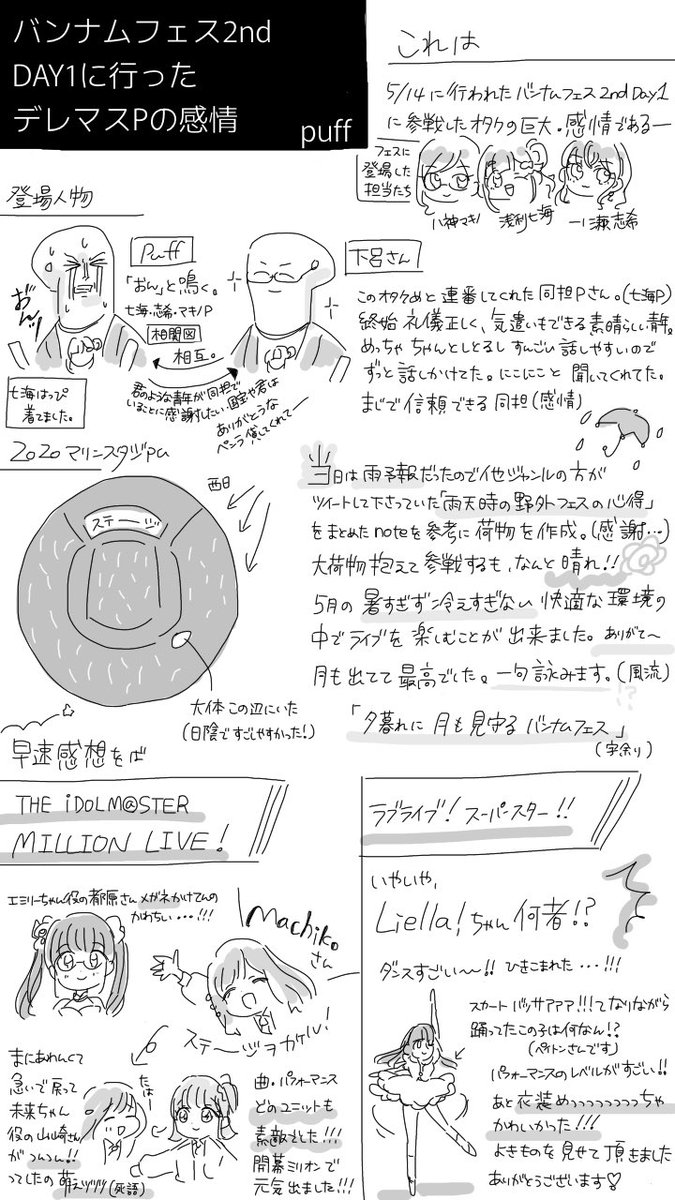 バンナムフェス2nd
DAY1に行った
デレマスPの感情
puff
これは
5/14に行われたバンナムフェス2nd Day1
に参戦したオタクの巨大感情である—
フェスに
登場した
担当たち
八神マキノ
浅利七海
一ノ瀬志希
登場人物
puff
おん!!
「おん」と鳴く。
七海・志希・マキノP
相関図
相互。
七海はっぴ
着てました。
君のような青年が同担で
いることに感謝したい。国宝や君は
ありがとうな
ペンラ貸してくれてー
下呂さん
このオタクめと連番してくれた同担Pさん。(七海P)
終始礼儀正しく、気遣いもできる素晴らしい青年。
めっちゃちゃんとしとるしすんごい話しやすいので
ずっと話しかけてた。にこにこと聞いてくれてた。
まじで信頼できる同担(感情)
ZOZOマリンスタジアム
西日
ステージ
大体この辺にいた
(日陰ですごしやすかった!)
当日は雨予報だったので他ジャンルの方が
ツイートして下さっていた「雨天時の野外フェスの心得」
をまとめたnoteを参考に荷物を作成。(感謝…)
大荷物抱えて参戦するも、なんと晴れ!!
5月の暑すぎず冷えすぎない快適な環境の
中でライブを楽しむことが出来ました。ありがて〜
月も出てて最高でした。一句詠みます。(風流)
!?
「夕暮れに 月も見守る バンナムフェス」
(字余り)
早速感想をば
THE iDOLM@STER
MILLION LIVE!
エミリーちゃん役の郁原さんメガネかけてんの
かわちい…!!!
Machiko
さん
ステージヲカケル!
まにあわんくて
急いで戻って
未来ちゃん
役の山崎さん
がつんつん!!
ってしたの萌えッッッッ(死語)
たはー
曲・パフォーマンス
どのユニットも
素敵でした!!!
開幕ミリオンで
元気出ました!!!
ラブライブ!スーパースター!!
いやいや、
Liella!ちゃん何者!?
ダンスすごい〜!!ひきこまれた…!!!
スカートバッサアアア!!!てなりながら
踊ってたこの子は何なん!?
(ペイトンさんです)
パフォーマンスのレベルがすごい!!
あと衣装めっっっっっっっちゃ
かわいかった!!!
よきものを見せて頂きました
ありがとうございます♡